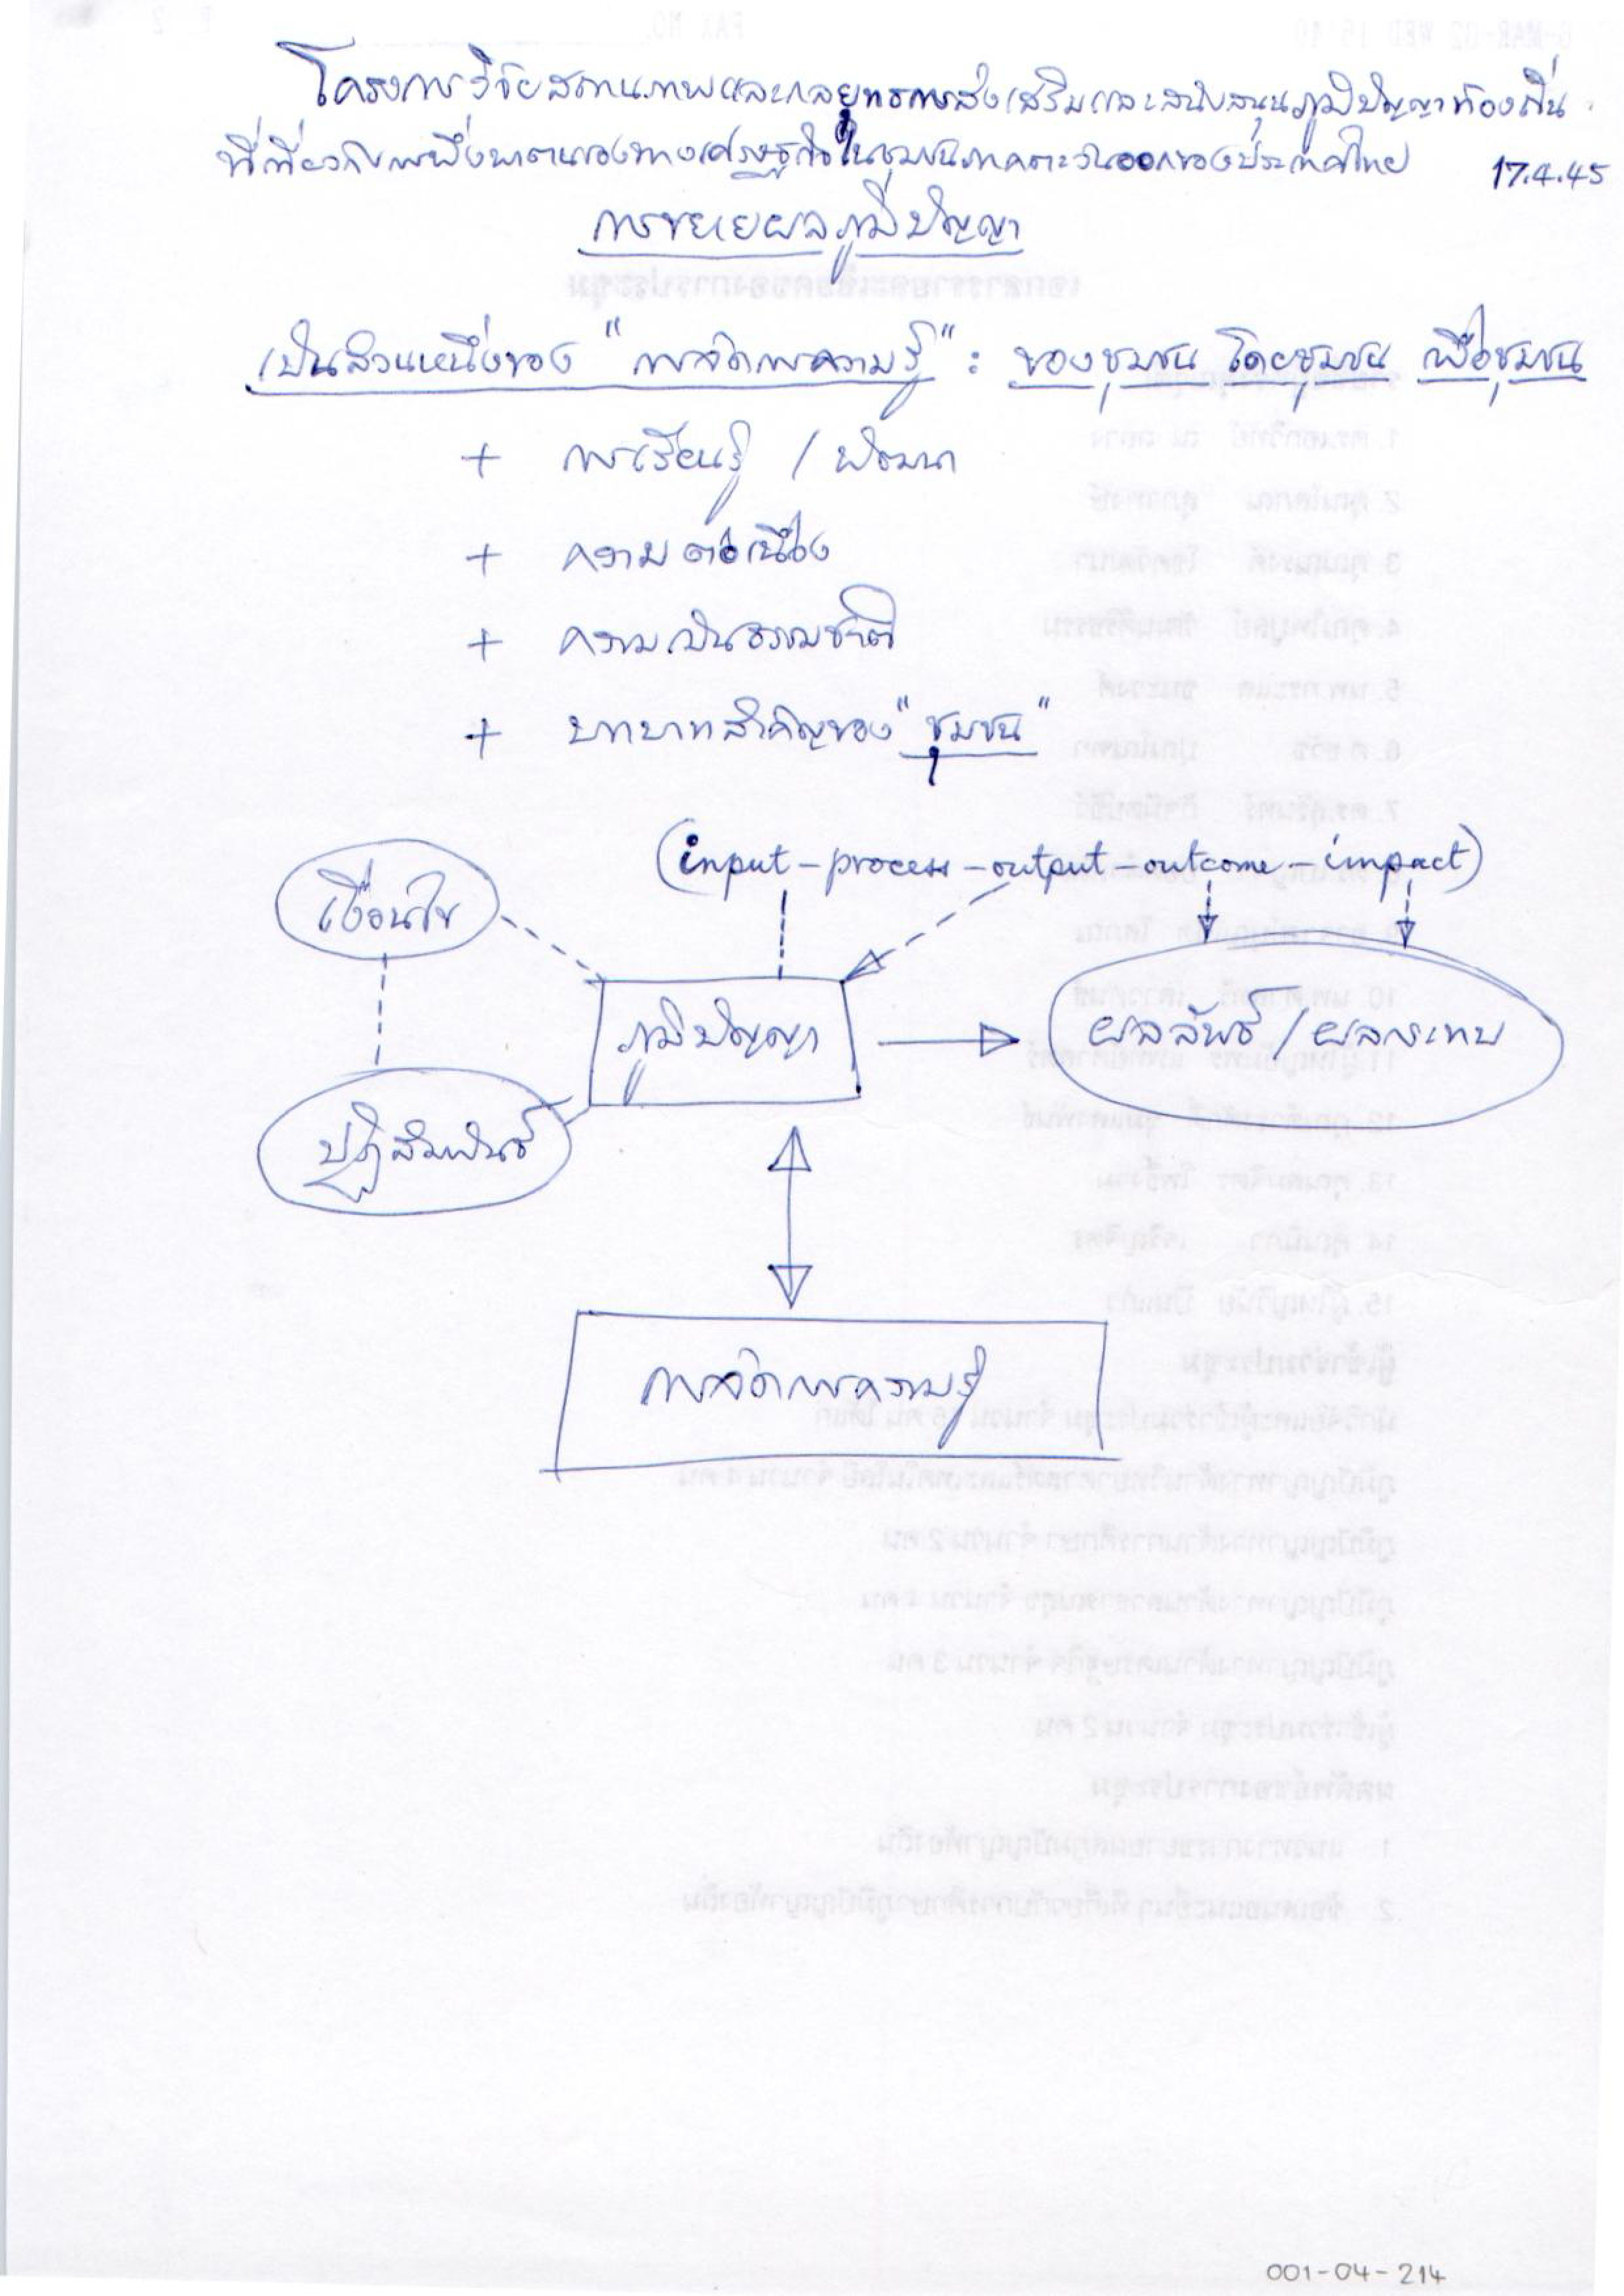 โครงการวิจัยสถานภาพและกลยุทธการส่งเสริมและสนับสนุนภูมิปัญญาท้องถิ่น
ที่เกี่ยวกับการพึ่งพาตนเองทางเศรษฐกิจในชุมชนภาคตะวันออกของประเทศไทย 17.4.45
การขยายผลภูมิปัญญา
เป็นส่วนหนึ่งของ "การจัดการความรู้" : ของชุมชน โดยชุมชน เพื่อชุมชน
+ การเรียนรู้ / พัฒนา
+ ความต่อเนื่อง
+ ความเป็นธรรมชาติ
+ บทบาทสำคัญของ "ชุมชน"
(input – process – output – outcome – impact)
เงื่อนไข
ภูมิปัญญา
ผลลัพธ์ / ผลกระทบ
ปฏิสัมพันธ์
การจัดการความรู้
001-04-214